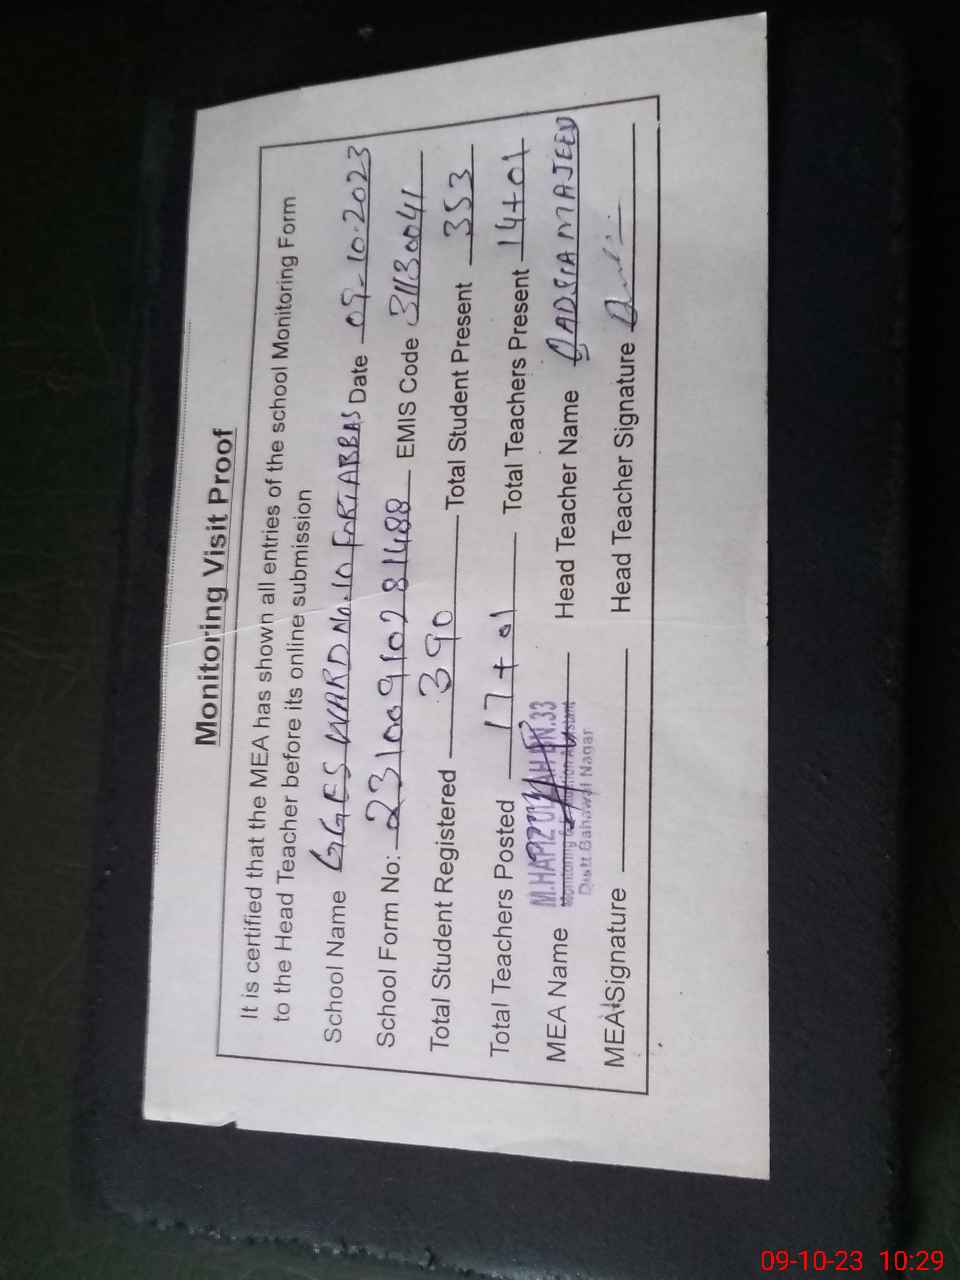 Monitoring Visit Proof
It is certified that the MEA has shown all entries of the school Monitoring Form
to the Head Teacher before its online submission
School Name GGES WARD No. 10 FORTABBAS Date 09-10-2023
School Form No: 231009102 81488 EMIS Code 31130041
Total Student Registered 390 Total Student Present 353
Total Teachers Posted 17+01 Total Teachers Present 14+01
MEA Name M.HAFIZ ULLAH BN.33 Head Teacher Name QADSIA MAJEED
Monitoring & Evaluation Assistant
Distt Bahawal Nagar
MEA Signature Head Teacher Signature
09-10-23 10:29